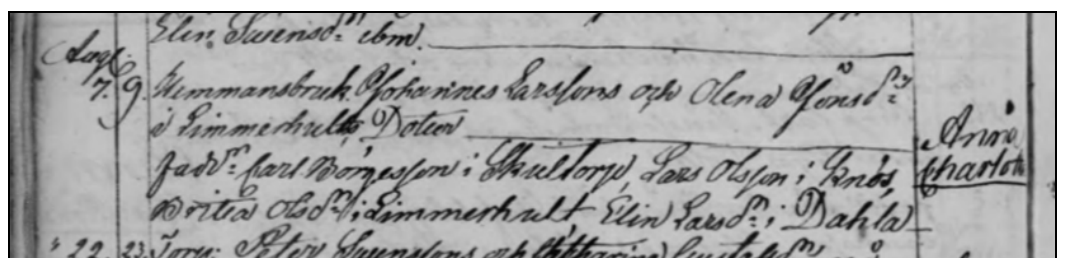 Elin Svensdr. ibm.
Aug.
7. 9. Hemmansbruk. Johannes Larssons och Olena Jonsdr.
i Limmerhults Dotter Anna
Fadr. Carl Börjesson i Skultorp, Lars Olsson i Knös, Charlot
Britta Olsdr. i Limmerhult Elin Larsdr. i Dahla
" 22. 23. Torp. Peter Svenssons och Catharina Gustafsdr.